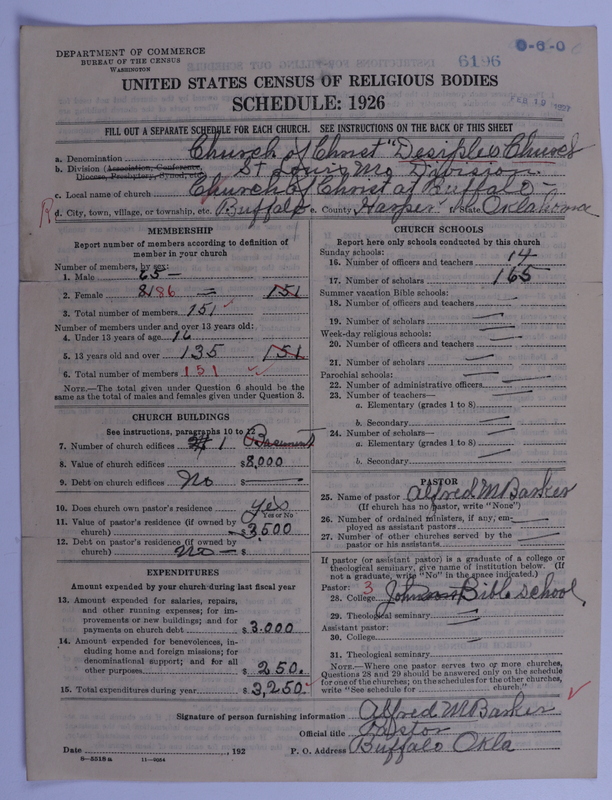 DEPARTMENT OF COMMERCE
BUREAU OF THE CENSUS
WASHINGTON
6196
0-6-0
UNITED STATES CENSUS OF RELIGIOUS BODIES
SCHEDULE: 1926
FEB 19 1927
FILL OUT A SEPARATE SCHEDULE FOR EACH CHURCH. SEE INSTRUCTIONS ON THE BACK OF THIS SHEET
a. Denomination Church of Christ "Desiples Church
b. Division (Association, Conference, Diocese, Presbytery, Synod, etc.) St Louis Mo Division.
c. Local name of church Church of Christ at Buffalo -
R d. City, town, village, or township, etc. Buffalo e. County Harper f. State Oklahoma
MEMBERSHIP
Report number of members according to definition of
member in your church
Number of members, by sex:
1. Male 65 -
2. Female 86 151
3. Total number of members 151
Number of members under and over 13 years old:
4. Under 13 years of age 16
5. 13 years old and over 135 151
6. Total number of members 151
NOTE.—The total given under Question 6 should be the
same as the total of males and females given under Question 3.
CHURCH BUILDINGS
See instructions, paragraphs 10 to 12
7. Number of church edifices 1 Basement
8. Value of church edifices $8,000
9. Debt on church edifices No $
10. Does church own pastor's residence yes
Yes or No
11. Value of pastor's residence (if owned by
church) $3,500
12. Debt on pastor's residence (if owned by
church) no - $
EXPENDITURES
Amount expended by your church during last fiscal year
13. Amount expended for salaries, repairs,
and other running expenses; for im-
provements or new buildings; and for
payments on church debt $3.000
14. Amount expended for benevolences, in-
cluding home and foreign missions; for
denominational support; and for all
other purposes $250.
15. Total expenditures during year $3,250.
CHURCH SCHOOLS
Report here only schools conducted by this church
Sunday schools:
16. Number of officers and teachers 14
17. Number of scholars 165
Summer vacation Bible schools:
18. Number of officers and teachers
19. Number of scholars
Week-day religious schools:
20. Number of officers and teachers
21. Number of scholars
Parochial schools:
22. Number of administrative officers
23. Number of teachers—
a. Elementary (grades 1 to 8)
b. Secondary
24. Number of scholars—
a. Elementary (grades 1 to 8)
b. Secondary
PASTOR
25. Name of pastor Alfred M Barker
(If church has no pastor, write "None")
26. Number of ordained ministers, if any, em-
ployed as assistant pastors
27. Number of other churches served by the
pastor or his assistants
If pastor (or assistant pastor) is a graduate of a college or
theological seminary, give name of institution below. (If
not a graduate, write "No" in the space indicated.)
Pastor: 3
28. College Johnson Bible school,
29. Theological seminary
Assistant pastor:
30. College
31. Theological seminary
NOTE.—Where one pastor serves two or more churches,
Questions 28 and 29 should be answered only on the schedule
for one of the churches; on the schedules for the other churches,
write "See schedule for church."
Signature of person furnishing information Alfred M Barker
Official title Pastor
Date , 192 P. O. Address Buffalo Okla
8—5518a 11—9064